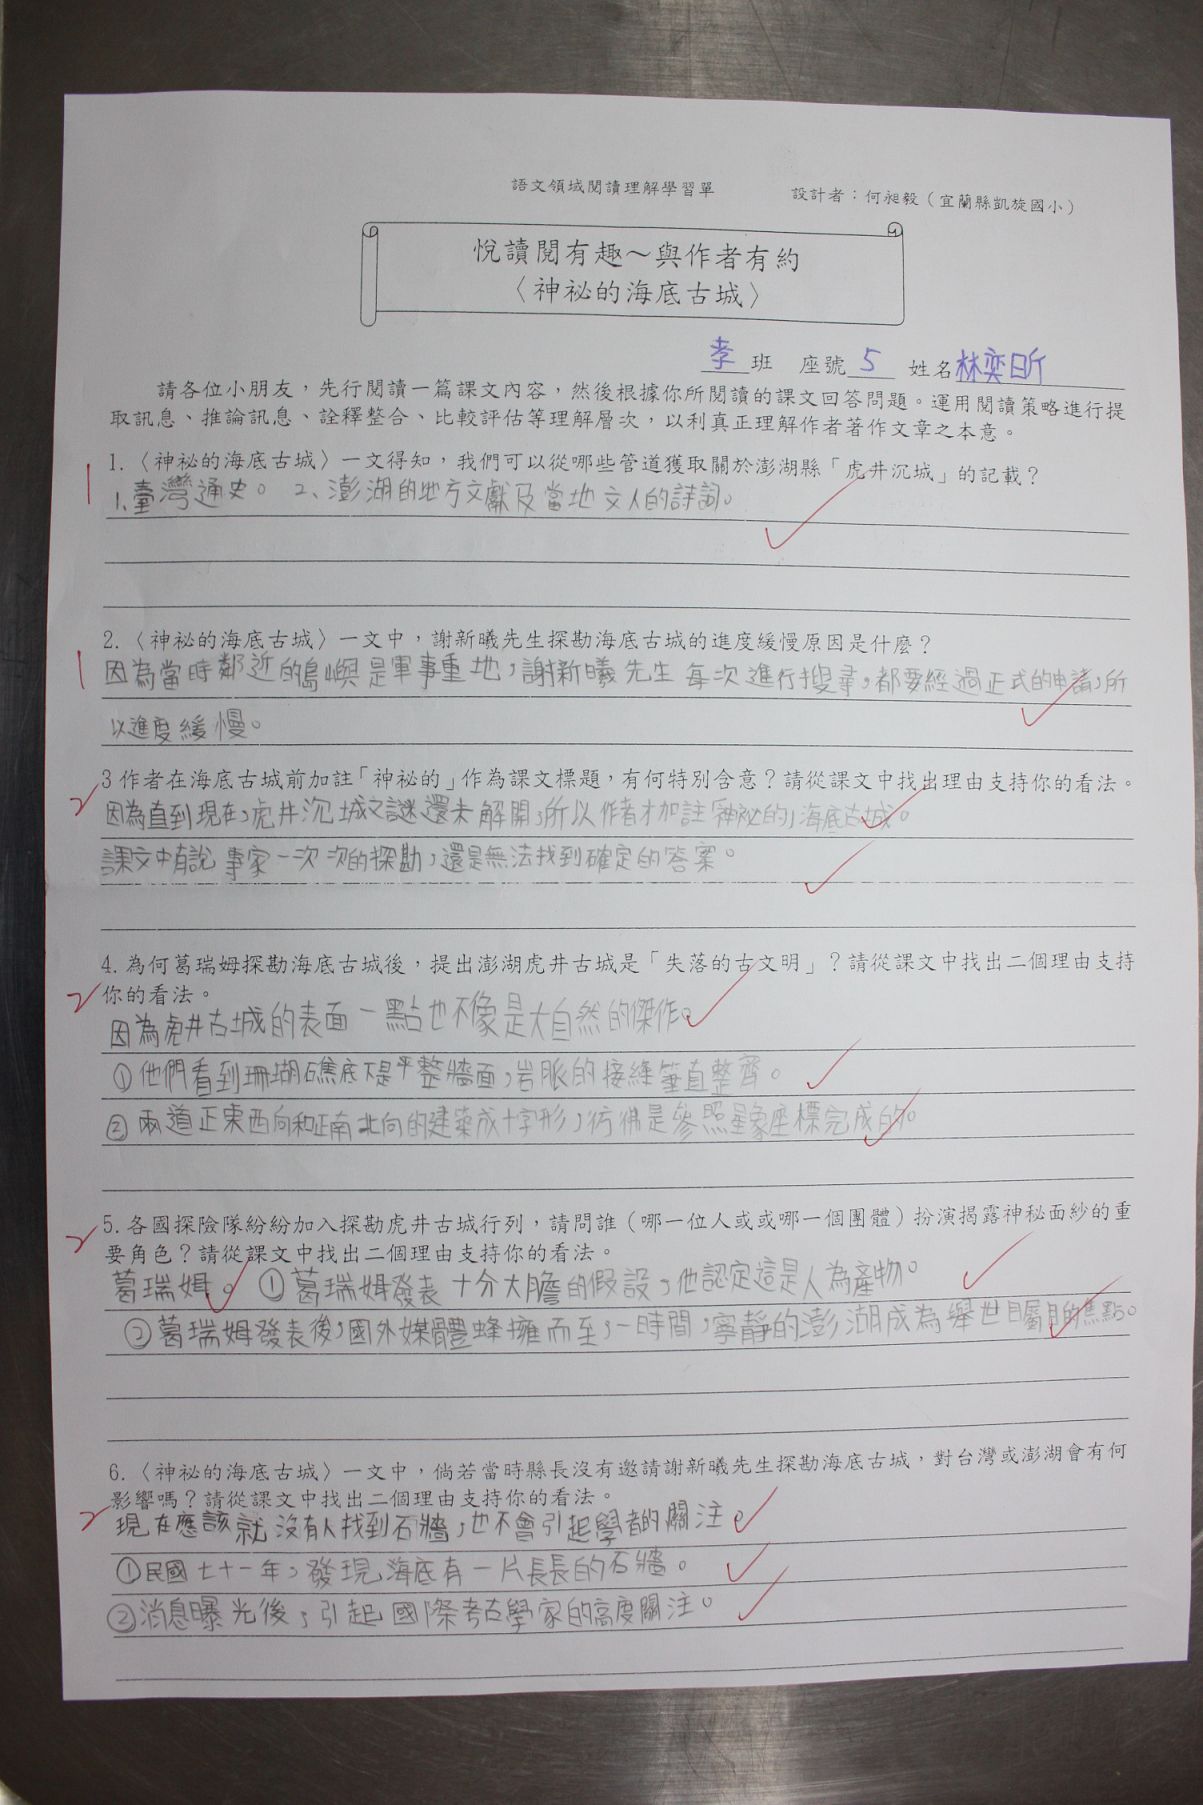 語文領域閱讀理解學習單 設計者：何昶毅（宜蘭縣凱旋國小）
悅讀閱有趣～與作者有約
〈神祕的海底古城〉
孝 班 座號 5 姓名 林奕昕
請各位小朋友，先行閱讀一篇課文內容，然後根據你所閱讀的課文回答問題。運用閱讀策略進行提
取訊息、推論訊息、詮釋整合、比較評估等理解層次，以利真正理解作者著作文章之本意。
1.〈神祕的海底古城〉一文得知，我們可以從哪些管道獲取關於澎湖縣「虎井沉城」的記載？
1
1、臺灣通史。 2、澎湖的地方文獻及當地文人的詩詞。
2.〈神祕的海底古城〉一文中，謝新曦先生探勘海底古城的進度緩慢原因是什麼？
1
因為當時鄰近的島嶼是軍事重地，謝新曦先生每次進行搜尋，都要經過正式的申請，所
以進度緩慢。
3 作者在海底古城前加註「神祕的」作為課文標題，有何特別含意？請從課文中找出理由支持你的看法。
2
因為直到現在，虎井沉城之謎還未解開，所以作者才加註「神祕的」海底古城。
課文中有說專家一次次的探勘，還是無法找到確定的答案。
4.為何葛瑞姆探勘海底古城後，提出澎湖虎井古城是「失落的古文明」？請從課文中找出二個理由支持
2 你的看法。
因為虎井古城的表面一點也不像是大自然的傑作。
①他們看到珊瑚礁底下是平整牆面，岩脈的接縫筆直整齊。
②兩道正東西向和正南北向的建築成十字形，彷彿是參照星象座標完成的。
5.各國探險隊紛紛加入探勘虎井古城行列，請問誰（哪一位人或或哪一個團體）扮演揭露神秘面紗的重
2 要角色？請從課文中找出二個理由支持你的看法。
葛瑞姆。 ①葛瑞姆發表十分大膽的假設，他認定這是人為產物。
②葛瑞姆發表後，國外媒體蜂擁而至，一時間，寧靜的澎湖成為舉世矚目的焦點。
6.〈神祕的海底古城〉一文中，倘若當時縣長沒有邀請謝新曦先生探勘海底古城，對台灣或澎湖會有何
影響嗎？請從課文中找出二個理由支持你的看法。
2
現在應該就沒有人找到石牆，也不會引起學者的關注。
①民國七十一年，發現海底有一片長長的石牆。
②消息曝光後，引起國際考古學家的高度關注。